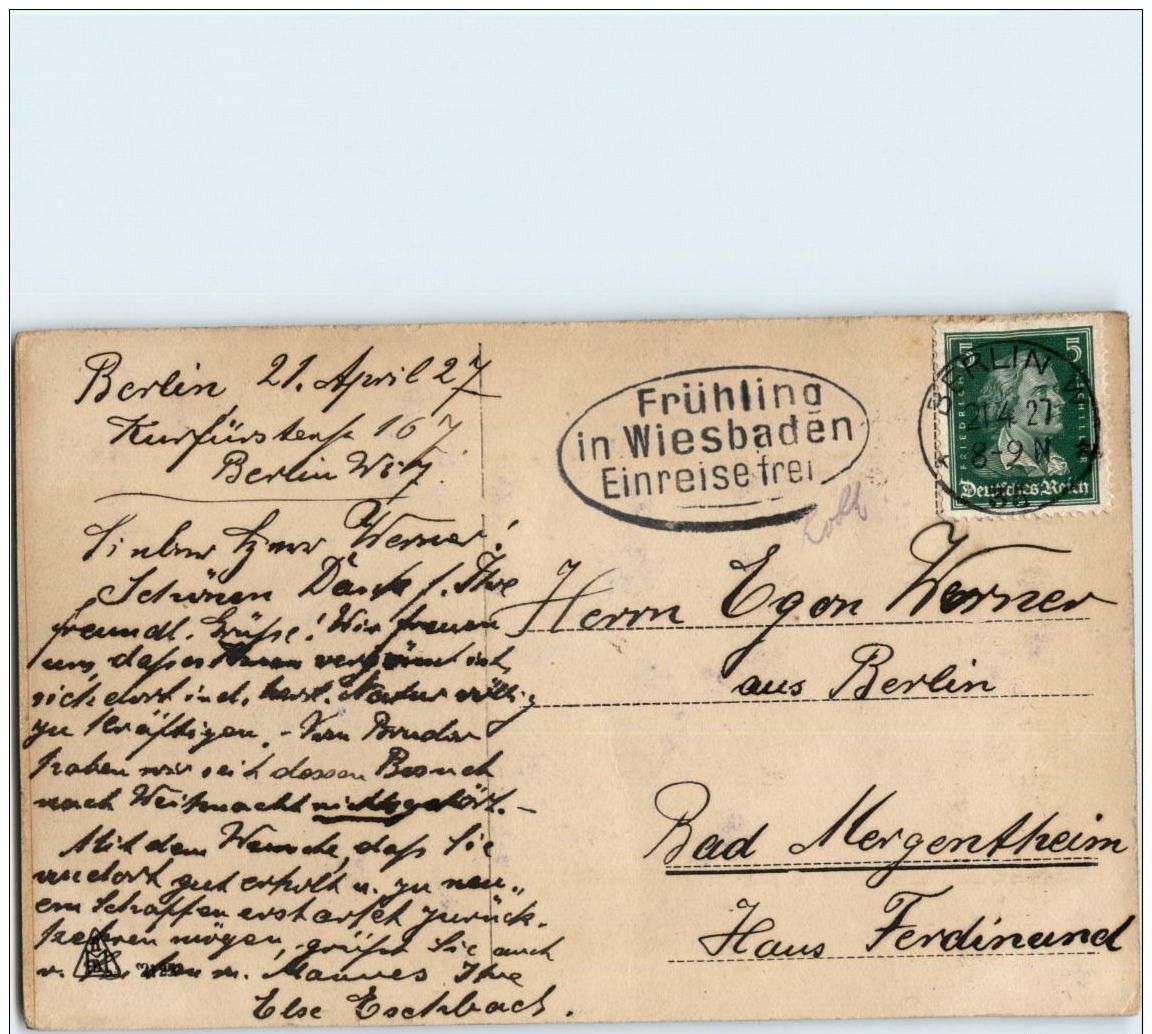 Berlin 21. April 27
Kurfürstenstr 167
Berlin W57.
Lieber Herr Werner!
Schönen Dank f. Ihre
freundl. Grüße! Wir freuen
uns, daß es Ihnen vergönnt ist,
sich dort in d. herrl. Natur völlig
zu kräftigen. - Vom Bruder
haben wir seit dessen Besuch
nach Weihnacht nichts gehört. -
Mit dem Wunsche, daß Sie
dort gut erholt u. zu neu„
em Schaffen erstarkt zurück-
kehren mögen, grüßt Sie auch
m. Mannes Ihre
Else Eschbach.
Frühling
in Wiesbaden
Einreise frei
FRIEDRICH SCHILLER
5 5
Deutsches Reich
BERLIN W
21.4.27
8-9 N
Herrn Egon Werner
aus Berlin
Bad Mergentheim
Haus Ferdinand